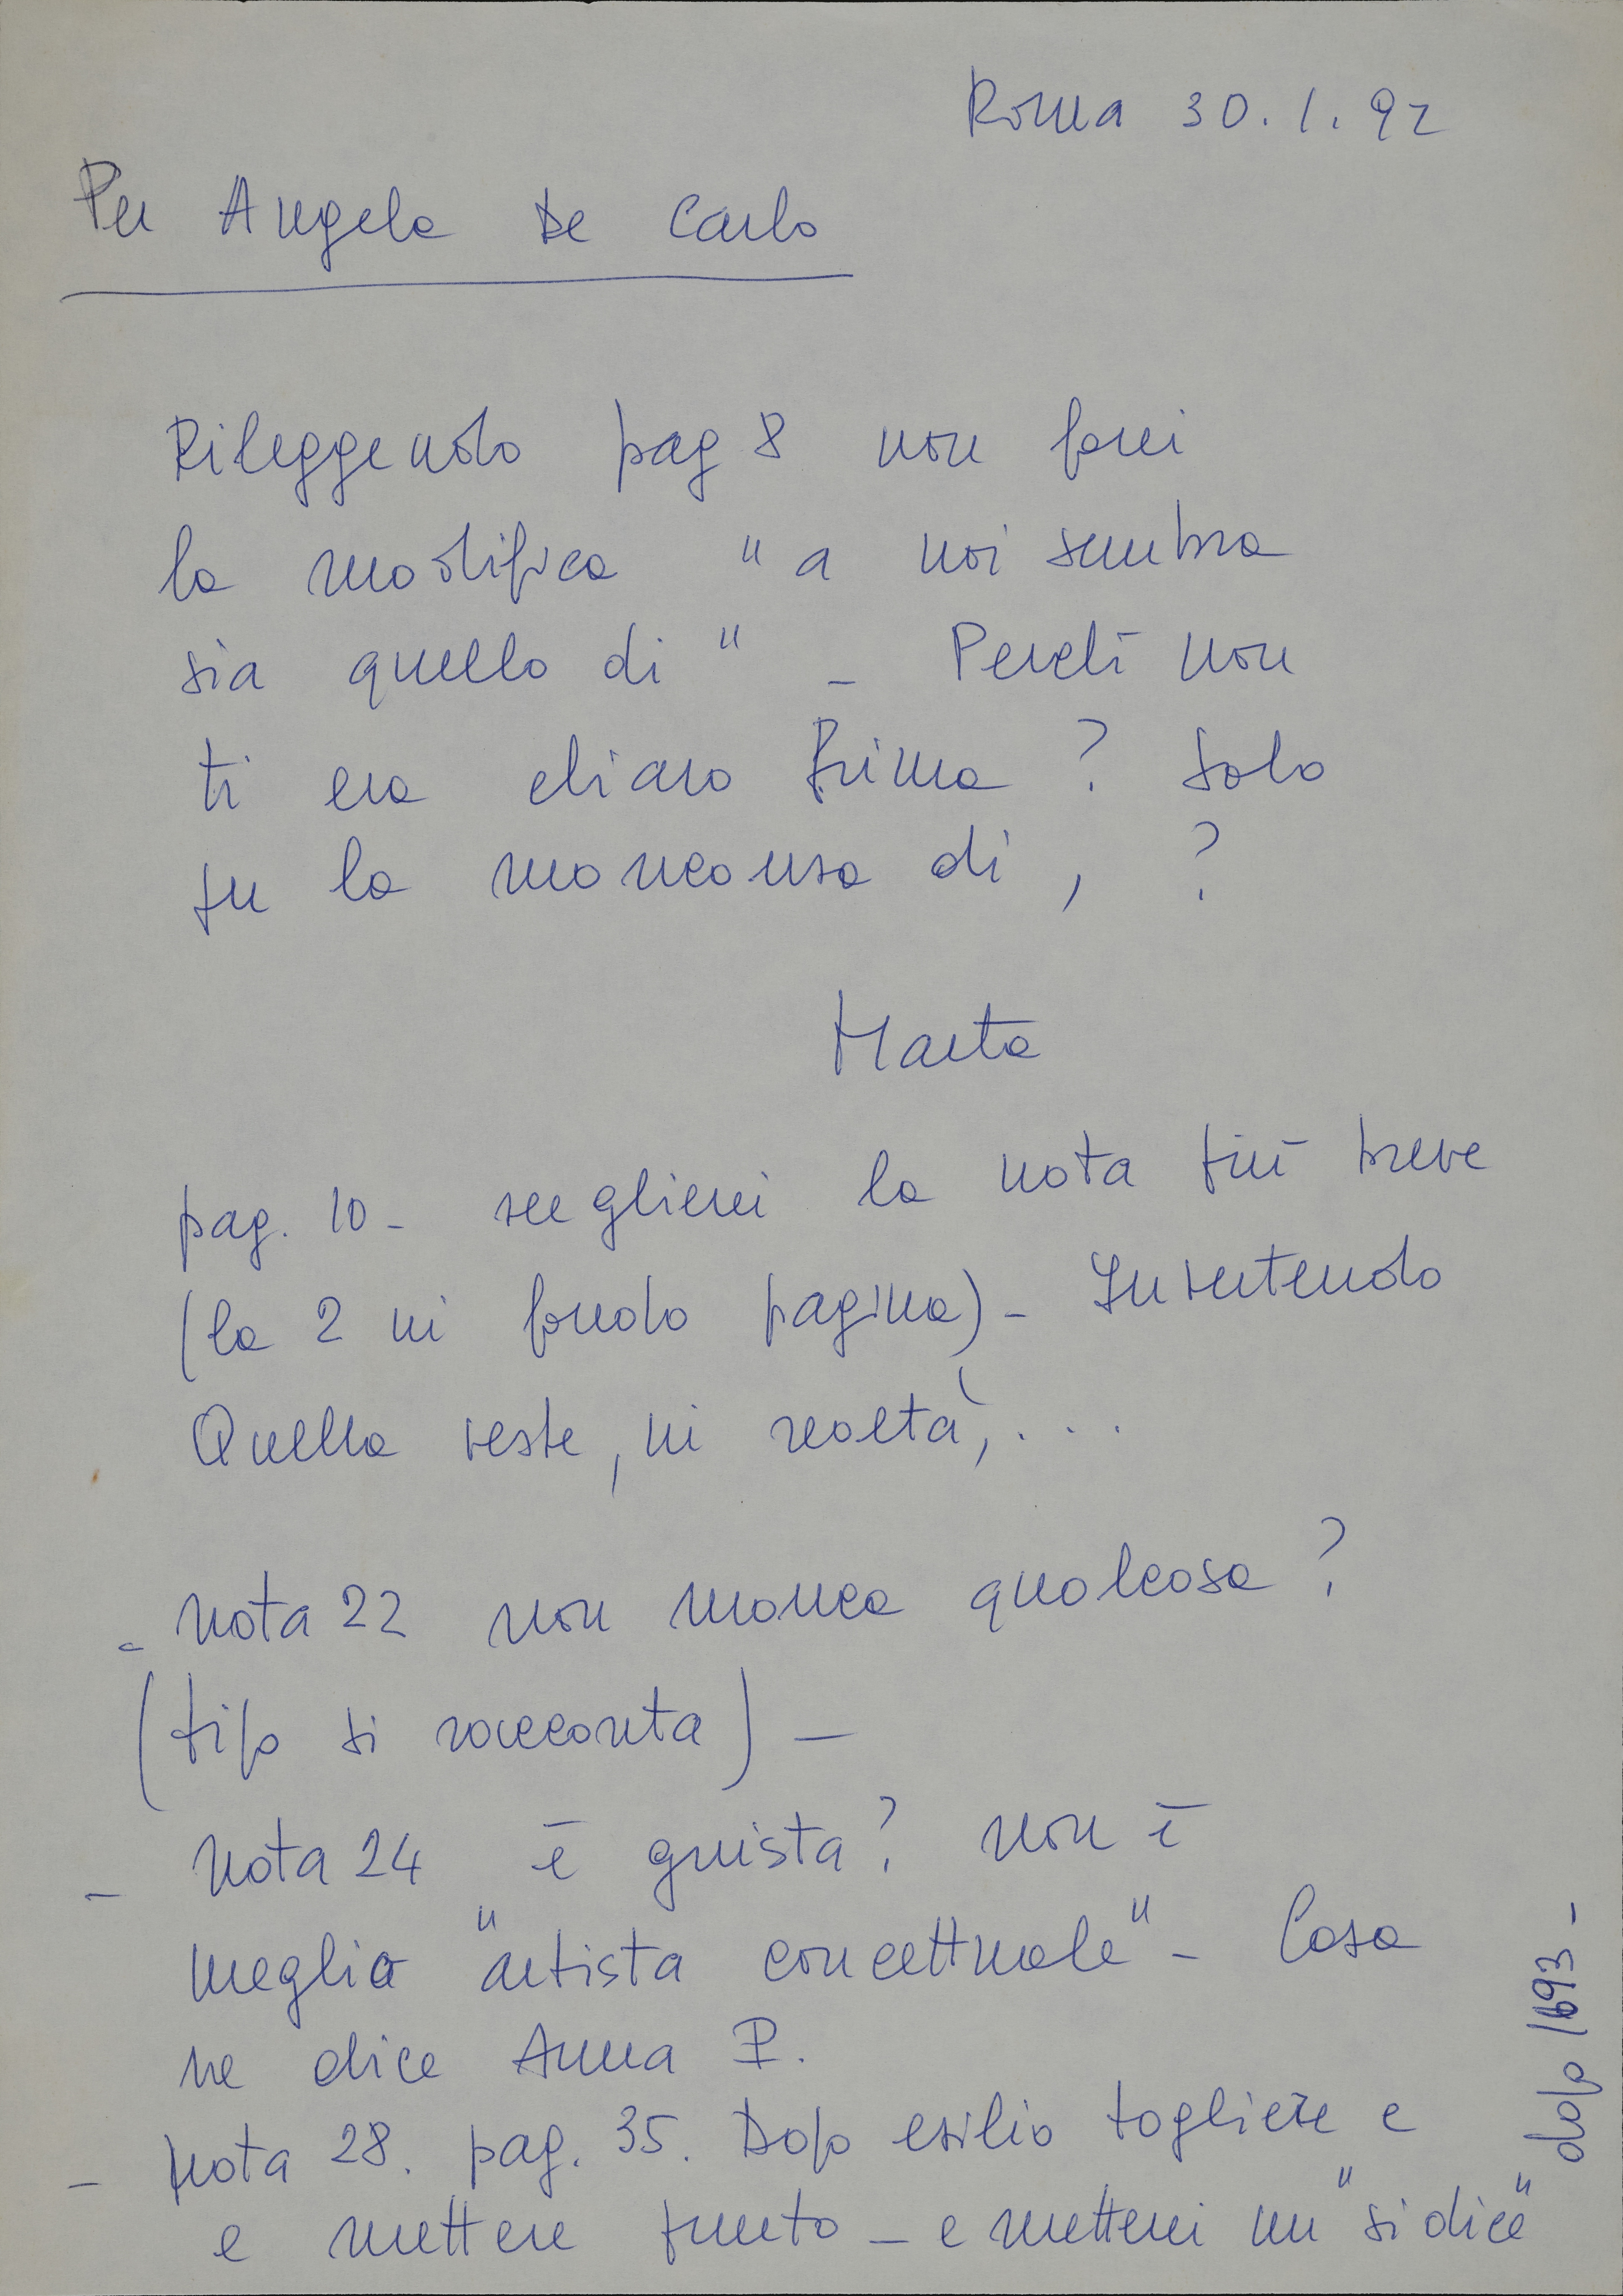 Roma 30.1.92
Per Angela De Carlo
Rileggendo pag 8 non farei
la modifica "a noi sembra
sia quello di" - Perchè non
ti era chiaro prima? Solo
per la mancanza di , ?
Marta
pag. 10 - sceglierei la nota più breve
(la 2 in fondo pagina) - Invertendo
Quella veste, in realtà, ...
- nota 22 non manca qualcosa?
(tipo si racconta) -
- nota 24 è giusta? non è
meglio "artista concettuale" - Cosa
ne dice Anna P.
- nota 28. pag. 35. Dopo esilio togliere e
e mettere punto - e metterei un "si dice"
dopo 1693 -